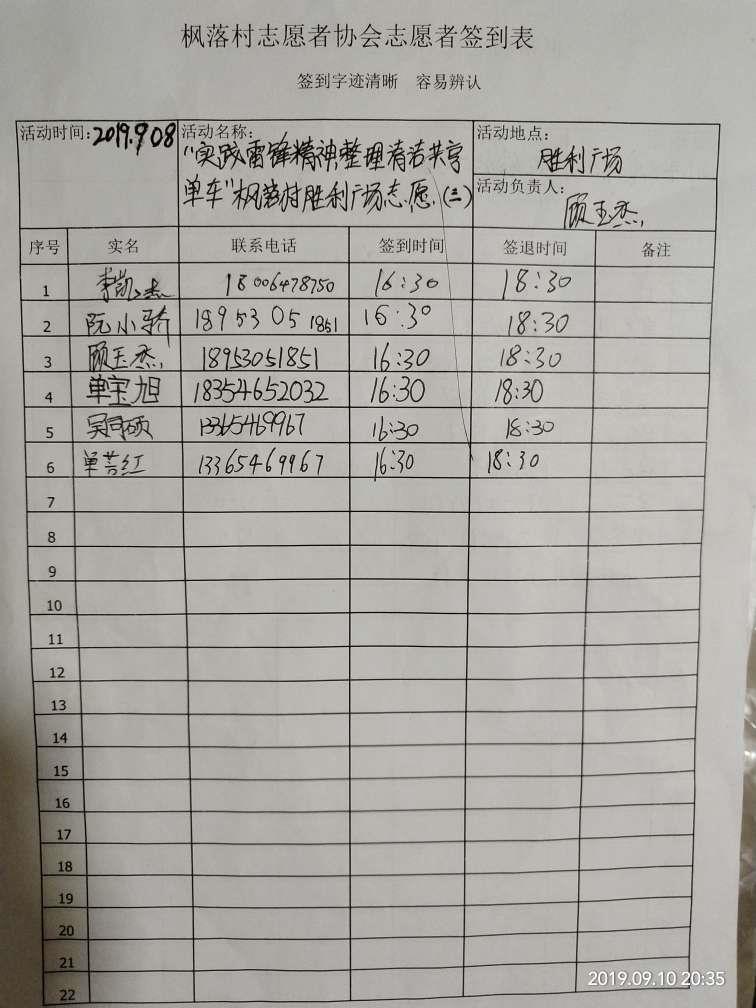 枫落村志愿者协会志愿者签到表
签到字迹清晰 容易辨认
活动时间: 2019.9.08 活动名称: 活动地点:
"实践雷锋精神整理清洁共享 胜利广场
单车"枫落村胜利广场志愿.(三) 活动负责人:
顾玉杰
序号 实名 联系电话 签到时间 签退时间 备注
1 李凯杰 18006478750 16:30 18:30
2 阮小骄 18953051851 16:30 18:30
3 顾玉杰 18953051851 16:30 18:30
4 单宝旭 18354652032 16:30 18:30
5 13365469967 16:30 18:30
6 单 红 13365469967 16:30 18:30
7
8
9
10
11
12
13
14
15
16
17
18
19
20
21
22
2019.09.10 20:35